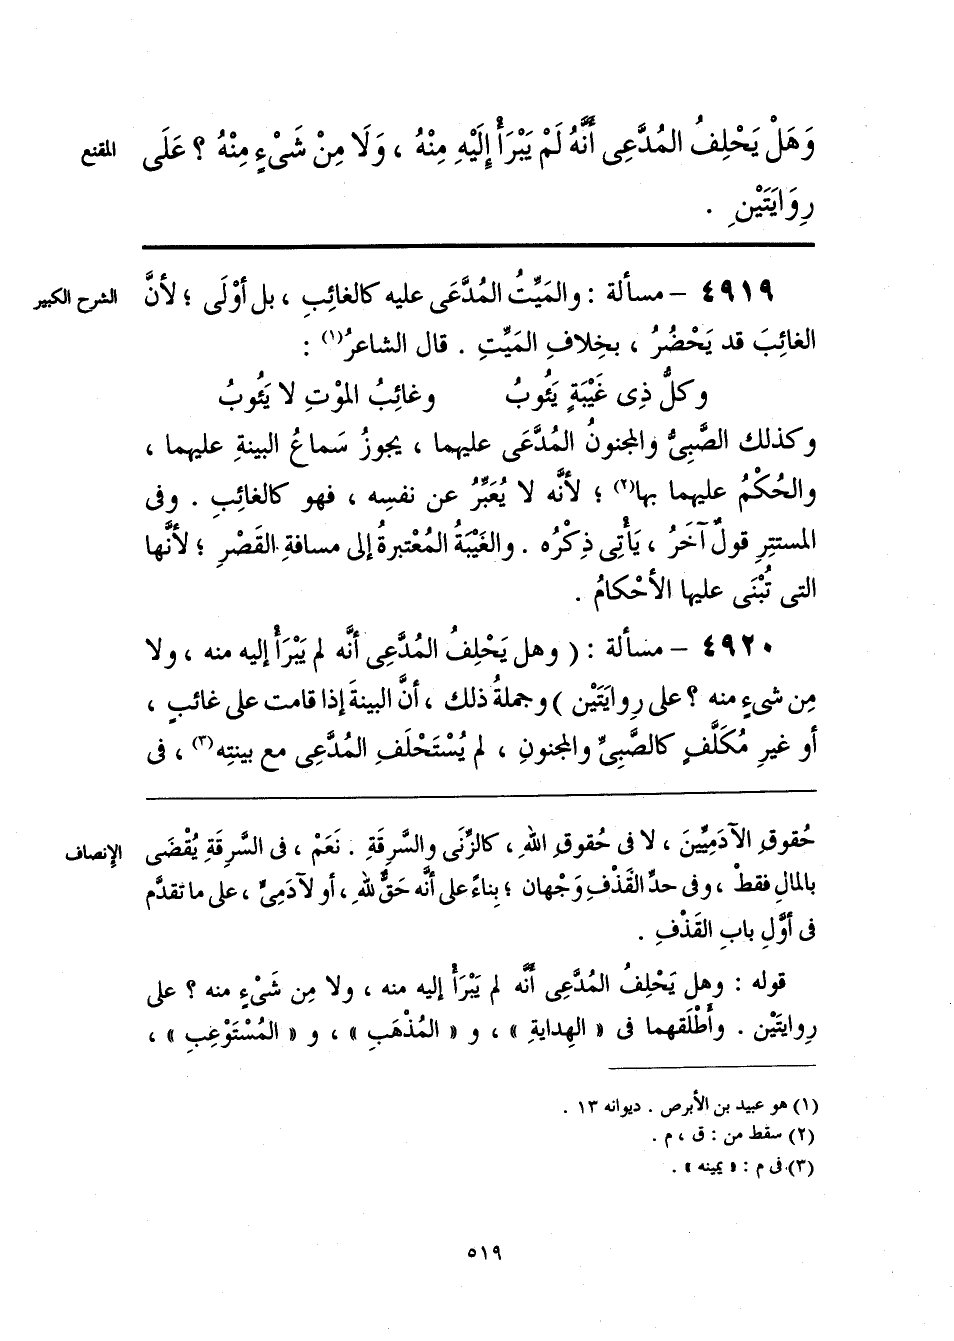 وَهَلْ يَحْلِفُ المُدَّعِى أَنَّهُ لَمْ يَبْرَأْ إِلَيْهِ مِنْهُ ، وَلَا مِنْ شَىْءٍ مِنْهُ ؟ عَلَى المقنع
رِوَايَتَيْنِ .
٤٩١٩ – مسألة : والمَيِّتُ المُدَّعَى عليه كالغائِبِ ، بل أوْلَى ؛ لأنَّ الشرح الكبير
الغائِبَ قد يَحْضُرُ ، بخِلافِ المَيِّتِ . قال الشاعرُ(١) :
وكلُّ ذِى غَيْبَةٍ يَئُوبُ وغائِبُ الموْتِ لا يَئُوبُ
وكذلك الصَّبِىُّ والمجنونُ المُدَّعَى عليهما ، يجوزُ سَماعُ البينةِ عليهما ،
والحُكْمُ عليهما بها(٢) ؛ لأنَّه لا يُعَبِّرُ عن نفسِه ، فهو كالغائِبِ . وفى
المستتِرِ قولٌ آخَرُ ، يَأْتِى ذِكْرُه . والغَيْبَةُ المُعْتبرةُ إلى مسافةِ القَصْرِ ؛ لأنَّها
التى تُبْنَى عليها الأحْكامُ .
٤٩٢٠ – مسألة : ( وهل يَحْلِفُ المُدَّعِى أنَّه لم يَبْرَأْ إليه منه ، ولا
مِن شىءٍ منه ؟ على رِوايَتَيْن ) وجملةُ ذلك ، أنَّ البينةَ إذا قامت على غائبٍ ،
أو غيرِ مُكَلَّفٍ كالصَّبِىِّ والمجنونِ ، لم يُسْتَحْلَفِ المُدَّعِى مع بينتِه(٣) ، فى
حُقوقِ الآدَمِيِّينَ ، لا فى حُقوقِ اللهِ ، كالزِّنَى والسَّرِقَةِ . نَعَمْ ، فى السَّرِقَةِ يُقْضَى الإنصاف
بالمالِ فقطْ ، وفى حدِّ القَذْفِ وَجْهان ؛ بِناءً على أنَّه حَقٌّ للهِ ، أو لآدَمِىٍّ ، على ما تقدَّم
فى أوَّلِ بابِ القَذْفِ .
قوله : وهل يَحْلِفُ المُدَّعِى أنَّه لم يَبْرَأْ إليه منه ، ولا مِن شَىْءٍ منه ؟ على
رِوايتَيْن . وأَطْلَقهما فى « الهِدايةِ » ، و « المُذْهَبِ » ، و « المُسْتَوْعِبِ » ،
(١) هو عبيد بن الأبرص . ديوانه ١٣ .
(٢) سقط من : ق ، م .
(٣) فى م : « يمينه » .
٥١٩